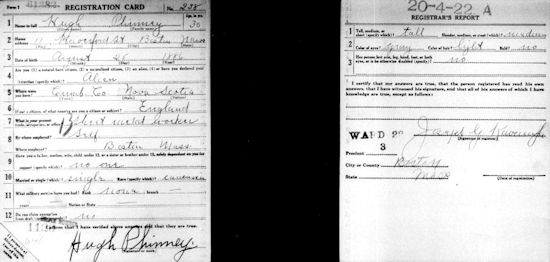 Form 1
REGISTRATION CARD
No. 238
1 Name in full Hugh Phinney
Age, in yrs. 30
2 Home address Haverford St Boston Mass
3 Date of birth August 1886
4 Are you (1) a natural-born citizen, (2) a naturalized citizen, (3) an alien, (4) or have you declared your
intention (specify which)? Alien
5 Where were you born? Cumb. Co Nova Scotia
6 If not a citizen, of what country are you a citizen or subject? England
7 What is your present trade, occupation, or office? Sheet metal worker
8 By whom employed?
Where employed? Boston Mass
9 Have you a father, mother, wife, child under 12, or a sister or brother under 12, solely dependent on you for
support (specify which)? no one
10 Married or single (which)? single Race (specify which)? caucasian
11 What military service have you had? Rank none branch
years Nation or State
12 Do you claim exemption from draft (specify grounds)? no
I affirm that I have verified above answers and that they are true.
Hugh Phinney
20-4-22 A
REGISTRAR'S REPORT
1 Tall, medium, or short (specify which)? tall Slender, medium, or stout (which)? medium
2 Color of eyes? gray Color of hair? light Bald? no
3 Has person lost arm, leg, hand, foot, or both eyes, or is he otherwise disabled (specify)? no
I certify that my answers are true, that the person registered has read his own
answers, that I have witnessed his signature, and that all of his answers of which I have
knowledge are true, except as follows:
WARD 2
Joseph G
(Signature of registrar)
Precinct 3
City or County Boston
State Mass
(Date of registration)